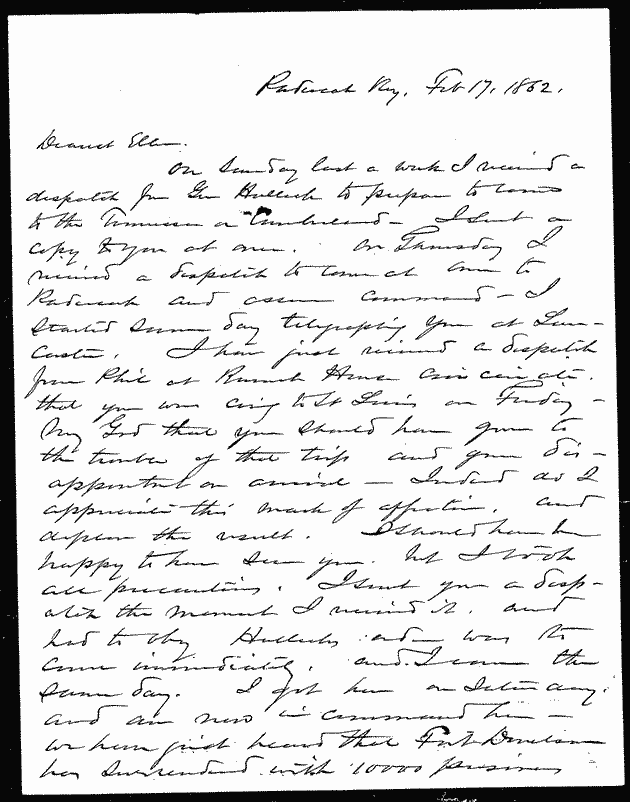 Paducah Ky, Feb 17, 1862.
Dearest Ellen.
On Sunday last a week I received a
dispatch fr Gen Halleck to prepare to come
to the Tennessee or Cumberland - I sent a
copy to you at once. On Thursday I
received a dispatch to come at once to
Paducah and assume command - I
started same day telegraphing you at Lan-
caster. I have just received a dispatch
from Phil at Burnet House Cincinnati.
that you were coming to St Louis on Friday -
My God that you should have gone to
the trouble of that trip and your dis-
appointment on arrival - Indeed do I
appreciate this mark of affection, and
deplore the result. I should have been
happy to have seen you. but I took
all precautions. I sent you a disp-
atch the moment I received it. and
had to obey Hallecks order was to
come immediately, and I came the
same day. I got here on Saturday.
and am now in command here -
we have just heard that Fort Donelson
has surrendered with 10000 prisoners